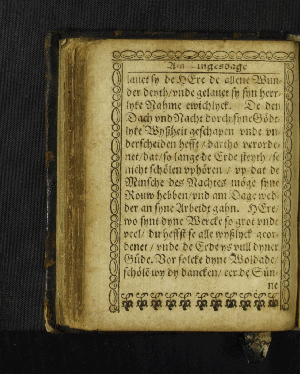 Am Dingesdage
lauet sy de HEre de allene Wun-
der deyth/vnde gelauet sy syn herr-
lyke Nahme ewichlyck. De den
Dach vnd Nacht dorch syne Gödt-
lyke Wyßheit geschapen vnde vn-
derscheiden hefft / dartho verorde-
net/dat/so lange de Erde steyth/se
nicht schölen vphören / vp dat de
Minsche des Nachtes möge syne
Rouw hebben/vnd am Dage wed-
der an syne Arbeidt gahn. HEre/
wo synt dyne Wercke so grot vnde
veel/ du heffst se alle wyßlyck geor-
denet / vnde de Erde ys vull dyner
Güde. Vor solcke dyne Woldade/
schöle wy dy dancken/ eer de Sün-
ne